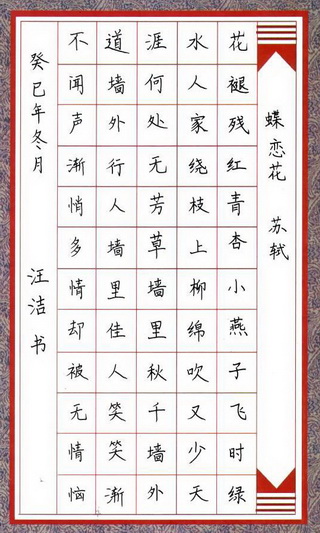 蝶恋花 苏轼
花褪残红青杏小燕子飞时绿
水人家绕枝上柳绵吹又少天
涯何处无芳草墙里秋千墙外
道墙外行人墙里佳人笑笑渐
不闻声渐悄多情却被无情恼
癸巳年冬月 汪洁书